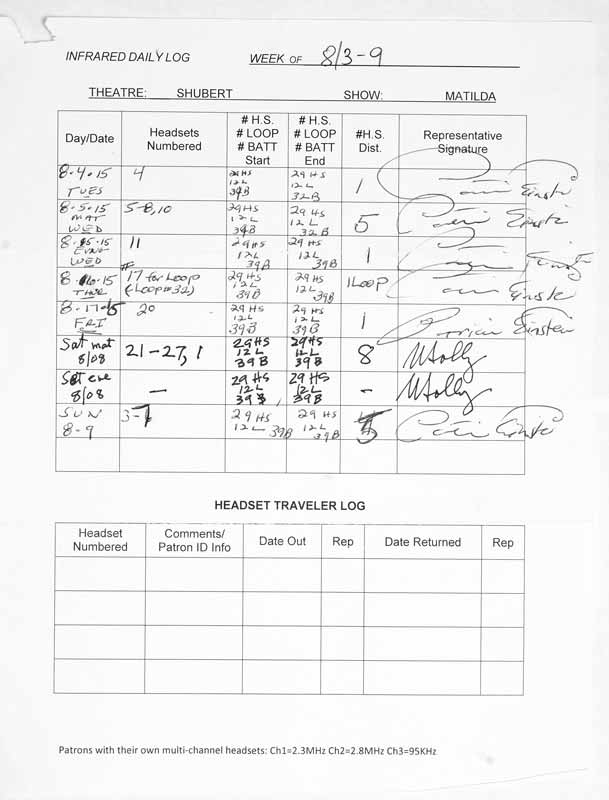 INFRARED DAILY LOG WEEK OF 8/3-9
THEATRE: SHUBERT SHOW: MATILDA
Day/Date
Headsets Numbered
# H.S. # LOOP # BATT Start
# H.S. # LOOP # BATT End
#H.S. Dist.
Representative Signature
8.4.15 TUES
4
29 HS 12 L 39B
29 HS 12 L 32B
1
8.5.15 MAT WED
5-8,10
29HS 12L 39B
29 HS 12L 32B
5
8.5.15 EVNG WED
11
29HS 12L 39B
29HS 12L 39B
1
8.6.15 THUR
# 17 for Loop (Loop#32)
29HS 12L 39B
29HS 12L 39B
1LOOP
8.7.15 FRI
20
29HS 12L 39B
29HS 12L 39B
1
Einstein
Sat mat 8/08
21-27, 1
29HS 12L 39B
29HS 12L 39B
8
MHolly
Sat eve 8/08
—
29HS 12L 39B
29HS 12L 39B
-
MHolly
SUN 8-9
3-7
29HS 12L 39B
29HS 12L 39B
5
HEADSET TRAVELER LOG
Headset Numbered
Comments/ Patron ID Info
Date Out
Rep
Date Returned
Rep
Patrons with their own multi-channel headsets: Ch1=2.3MHz Ch2=2.8MHz Ch3=95KHz